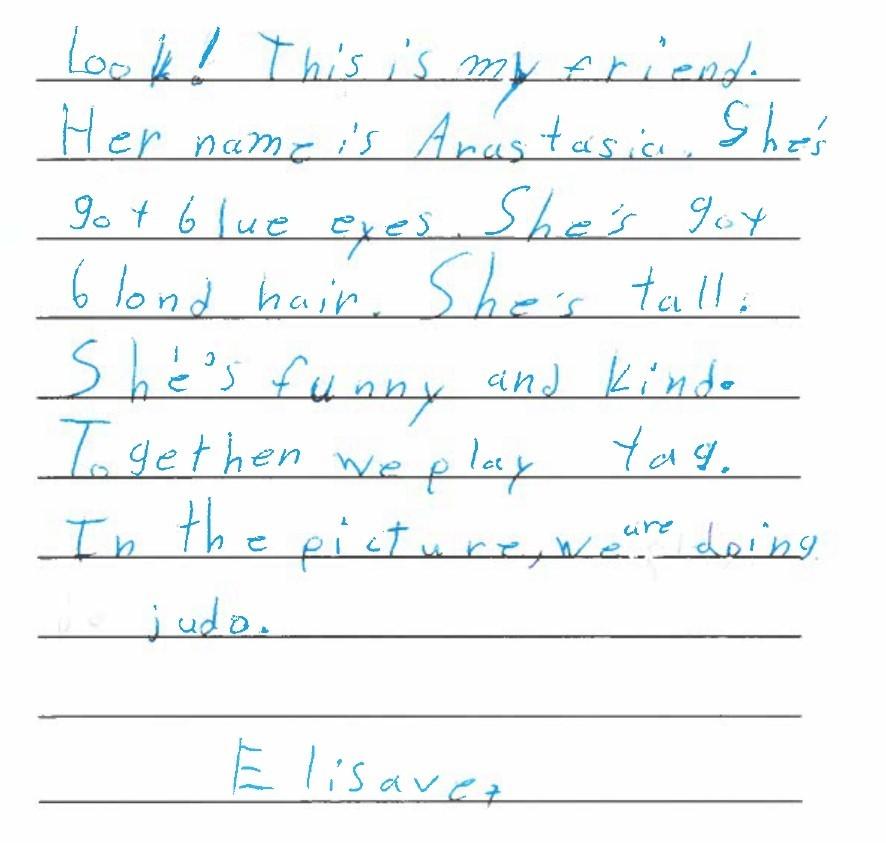 Look! This is my friend.
Her name is Anastasia. She's
got blue eyes. She's got
blond hair. She's tall.
She's funny and kind.
Together we play tag.
In the picture, we are doing
judo.
Elisavet